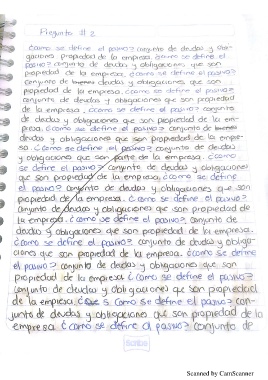 Pregunta # 2
¿Como se define el pasivo? conjunto de deudas y obli-
gaciones propiedad de la empresa. ¿como se define el
pasivo? conjunto de deudas y obligaciones que son
propiedad de la empresa. ¿como se define el pasivo?
conjunto de deudas y obligaciones que son propiedad
de la empresa. ¿como se define el pasivo? conjunto
de deudas y obligaciones que son propiedad de la em-
presa. ¿como se define el pasivo? conjunto de
deudas y obligaciones que son propiedad de la empre-
sa. ¿como se define el pasivo? conjunto de deudas
y obligaciones que son parte de la empresa. ¿como
se define el pasivo? conjunto de deudas y obligaciones
que son propiedad de la empresa. ¿como se define
el pasivo? conjunto de deudas y obligaciones que son
propiedad de la empresa. ¿como se define el pasivo?
conjunto de deudas y obligaciones que son propiedad de
la empresa. ¿como se define el pasivo? conjunto de
deudas y obligaciones que son propiedad de la empresa.
¿como se define el pasivo? conjunto de deudas y obliga-
ciones que son propiedad de la empresa. ¿como se define
el pasivo? conjunto de deudas y obligaciones que son
propiedad de la empresa. ¿como se define el pasivo?
conjunto de deudas y obligaciones que son propiedad
de la empresa. ¿como se define el pasivo? con-
junto de deudas y obligaciones que son propiedad de la
empresa ¿como se define el pasivo? conjunto de
Scribe
Scanned by CamScanner